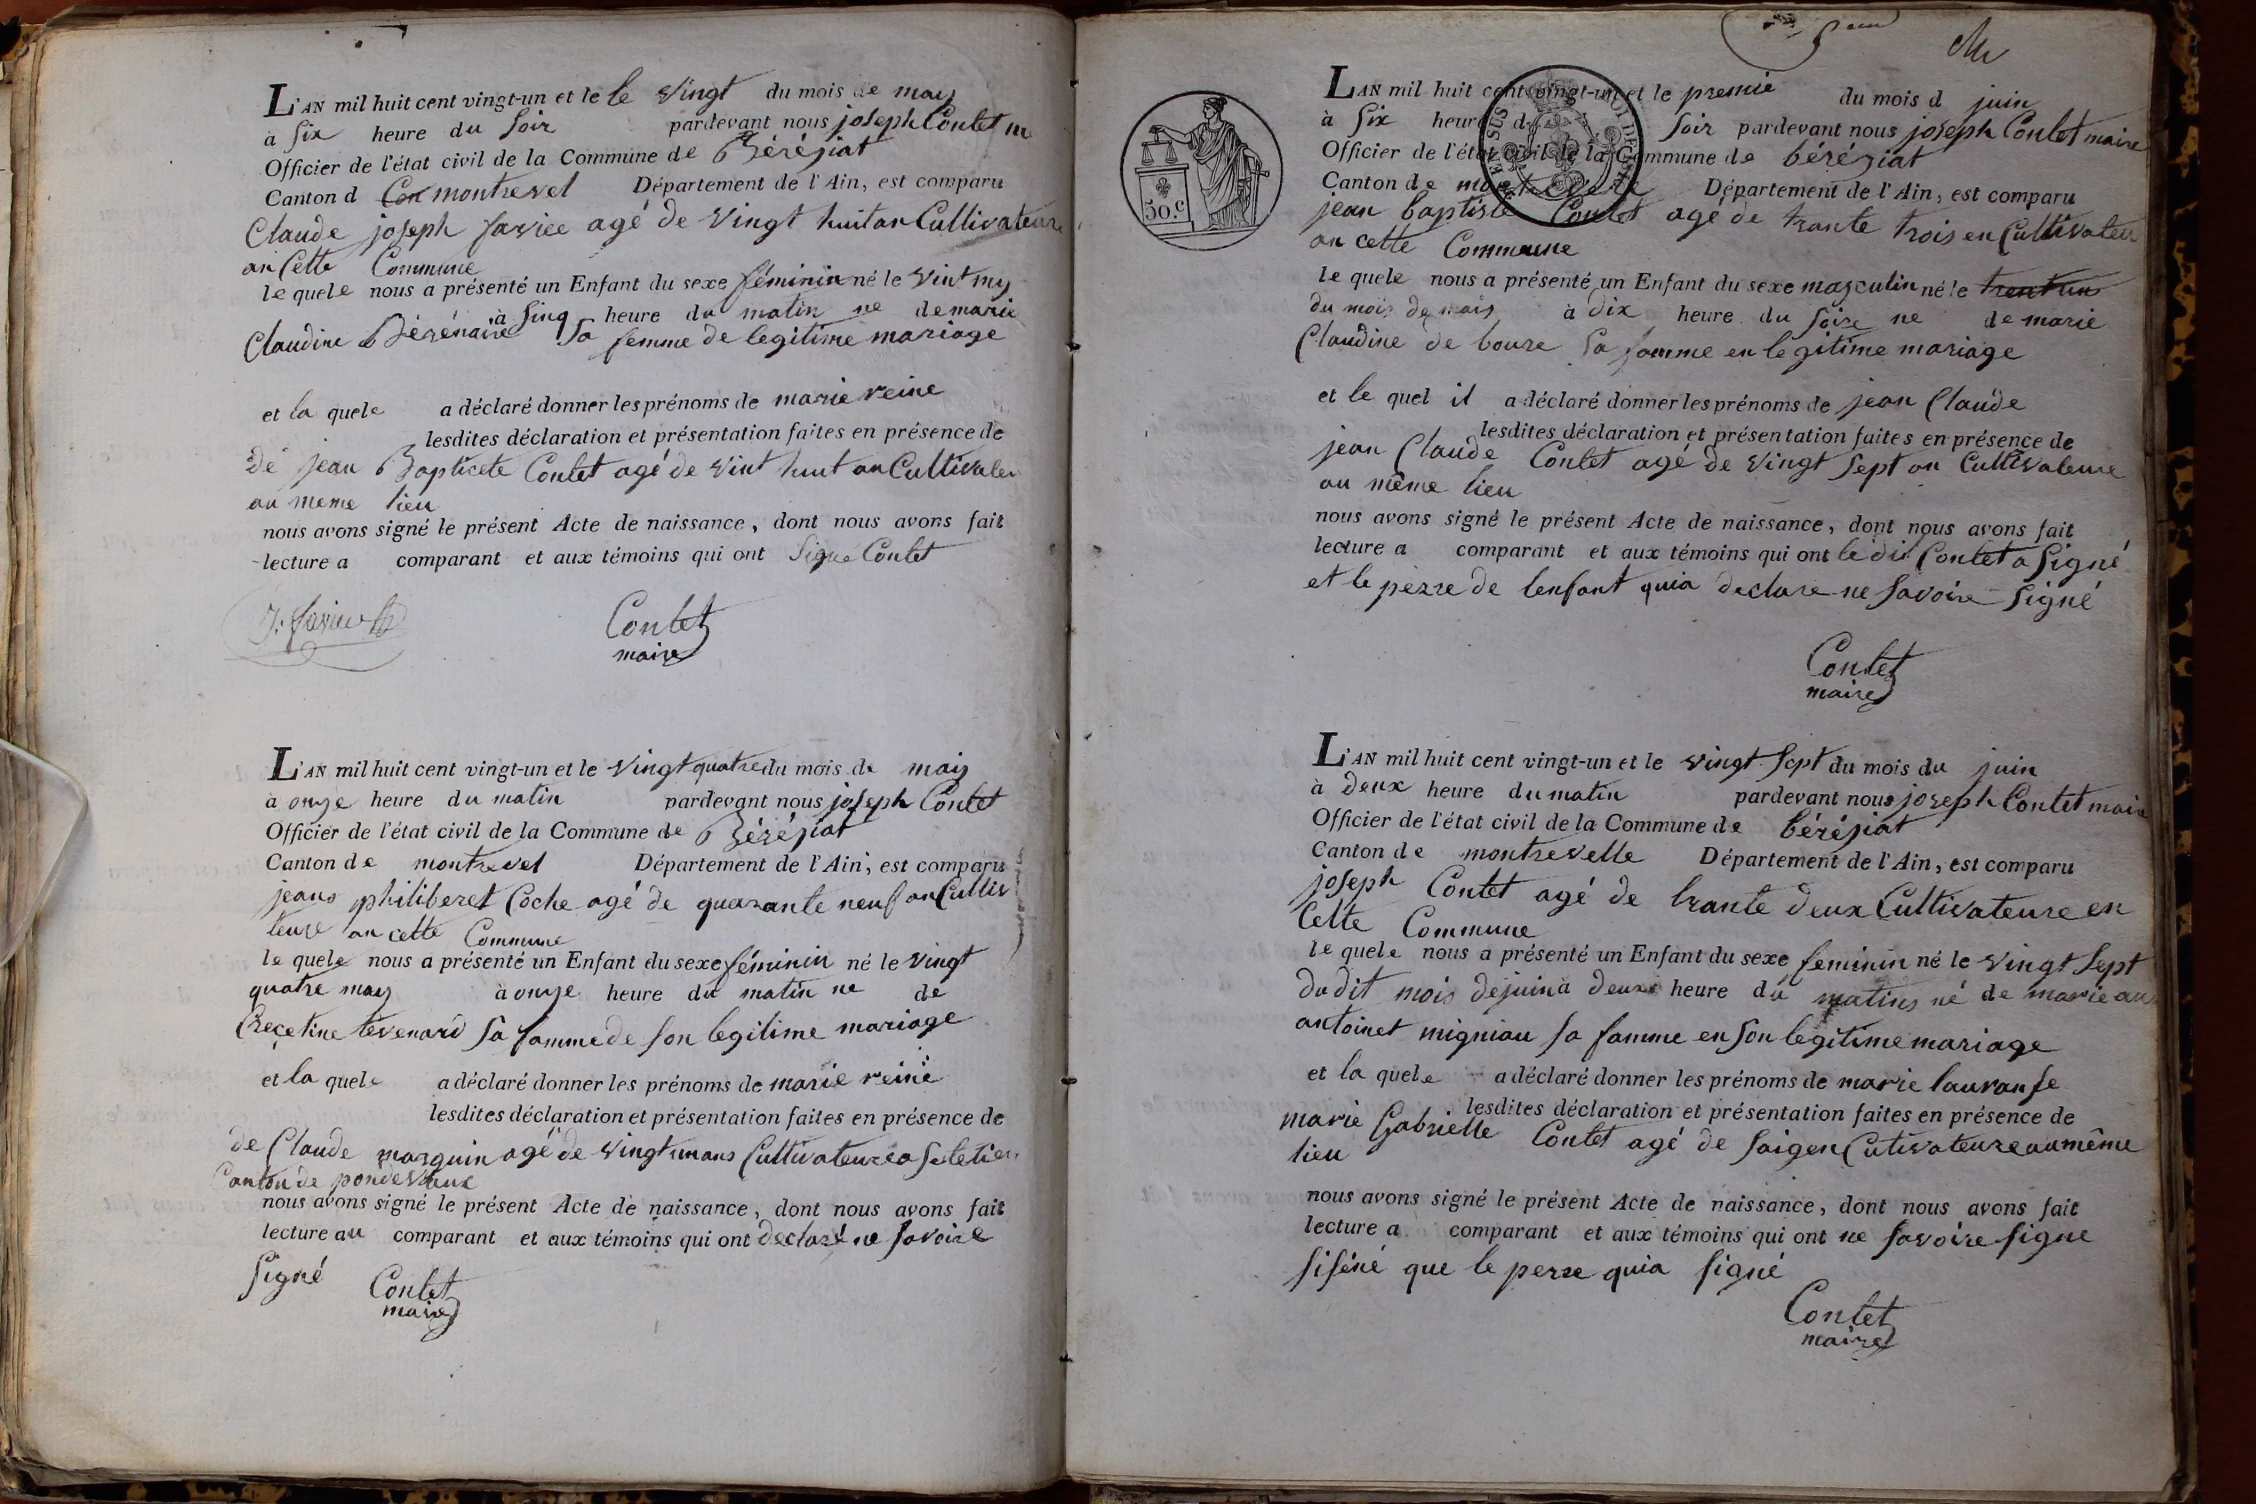 L'AN mil huit cent vingt-un et le le vingt du mois de may
à six heure du soir pardevant nous joseph Contet m
Officier de l'état civil de la Commune de Béréziat
Canton d montrevel Département de l'Ain, est comparu
Claude joseph favier agé de vingt huit an Cultivateure
an Cette Commune
le quele nous a présenté un Enfant du sexe féminin né le vint my
à sinq heure du matin ne de marie
Claudine Bérénaire sa femme de legitime mariage
et la quele a déclaré donner les prénoms de marie reine
lesdites déclaration et présentation faites en présence de
de jean Bapticete Contet agé de vint huit an Cultivateu
au meme lieu
nous avons signé le présent Acte de naissance, dont nous avons fait
lecture a comparant et aux témoins qui ont signé Contet
Contet
maire
L'AN mil huit cent vingt-un et le vingt quatre du mois de may
à onze heure du matin pardevant nous joseph Contet
Officier de l'état civil de la Commune de Béréziat
Canton de montrevel Département de l'Ain, est comparu
jeans philiberet Coche agé de quarante neuf an Cultiv
teure an cette Commune
le quele nous a présenté un Enfant du sexe féminin né le vingt
quatre may à onze heure du matin ne de
tevenard sa famme de son legitime mariage
et la quele a déclaré donner les prénoms de marie reine
lesdites déclaration et présentation faites en présence de
de Claude marguin agé de vingt un ans Cultivateure a
Canton de pondevaux
nous avons signé le présent Acte de naissance, dont nous avons fait
lecture au comparant et aux témoins qui ont declaré ne savoire
signé
Contet
maire
50.c
L'AN mil huit cent vingt-un et le premie du mois d juin
à six heure d soir pardevant nous joseph Contet maire
Officier de l'état civil de la Commune de béréziat
Canton de Département de l'Ain, est comparu
jean baptiste Contet agé de trante trois en Cultivateu
an cette Commune
le quele nous a présenté un Enfant du sexe masculin né le trent un
du mois de mais à dix heure du soire ne de marie
Claudine de boure sa famme en legitime mariage
et le quel il a déclaré donner les prénoms de jean Claude
lesdites déclaration et présentation faites en présence de
jean Claude Contet agé de vingt sept an Cultivateure
au même lieu
nous avons signé le présent Acte de naissance, dont nous avons fait
lecture a comparant et aux témoins qui ont le dit Contet a signé
et le perre de lenfant quia declare ne savoire signé
Contet
maire
L'AN mil huit cent vingt-un et le vingt sept du mois du juin
à deux heure du matin pardevant nous joseph Contet maire
Officier de l'état civil de la Commune de béréziat
Canton de montrevelle Département de l'Ain, est comparu
joseph Contet agé de trante deux Cultivateure en
Cette Commune
le quele nous a présenté un Enfant du sexe feminin né le vingt sept
du dit mois dejuin à deux heure du matins né de marie
antoinet migniau sa famme en son legitime mariage
et la quele a déclaré donner les prénoms de marie lauranse
lesdites déclaration et présentation faites en présence de
marie Gabrielle Contet agé de saigen Cutivateure au même
lieu
nous avons signé le présent Acte de naissance, dont nous avons fait
lecture a comparant et aux témoins qui ont ne savoire signe
que le perre quia signé
Contet
maire